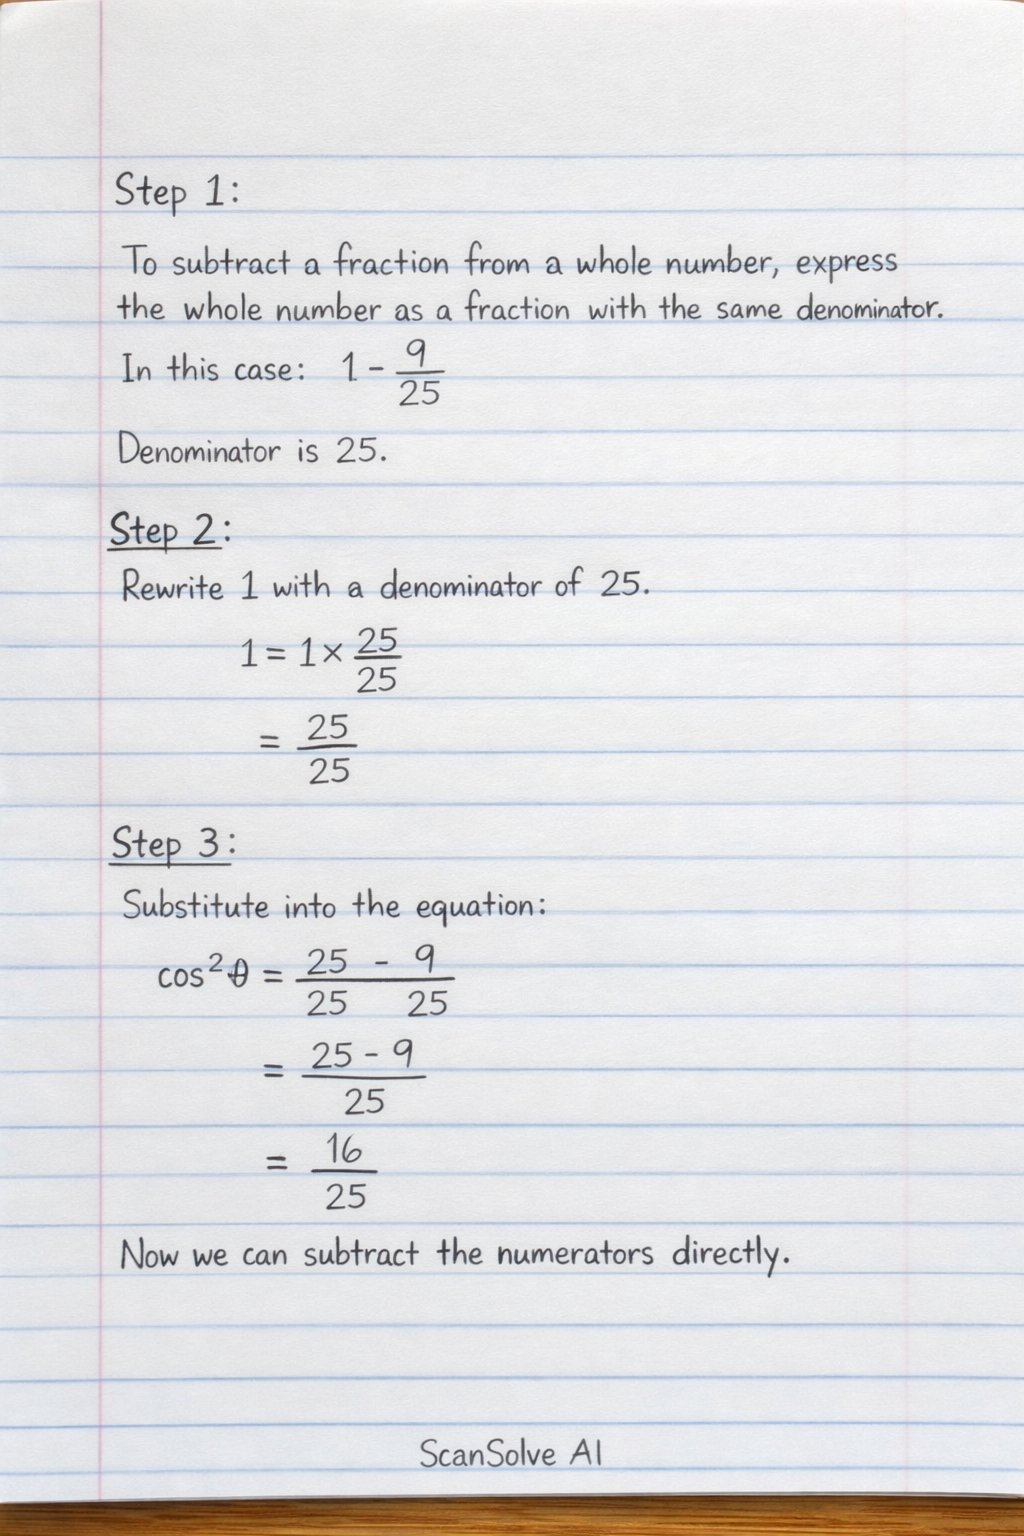 Step 1:
To subtract a fraction from a whole number, express
the whole number as a fraction with the same denominator.
In this case: 1 - 9/25
Denominator is 25.
Step 2:
Rewrite 1 with a denominator of 25.
1 = 1 × 25/25
= 25/25
Step 3:
Substitute into the equation:
cos²θ = 25/25 - 9/25
= (25 - 9)/25
= 16/25
Now we can subtract the numerators directly.
ScanSolve AI